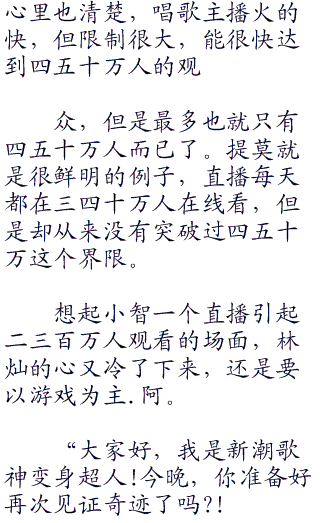 心里也清楚，唱歌主播火的
快，但限制很大，能很快达
到四五十万人的观
众，但是最多也就只有
四五十万人而已了。提莫就
是很鲜明的例子，直播每天
都在三四十万人在线看，但
是却从来没有突破过四五十
万这个界限。
想起小智一个直播引起
二三百万人观看的场面，林
灿的心又冷了下来，还是要
以游戏为主.阿。
“大家好，我是新潮歌
神变身超人!今晚，你准备好
再次见证奇迹了吗?!